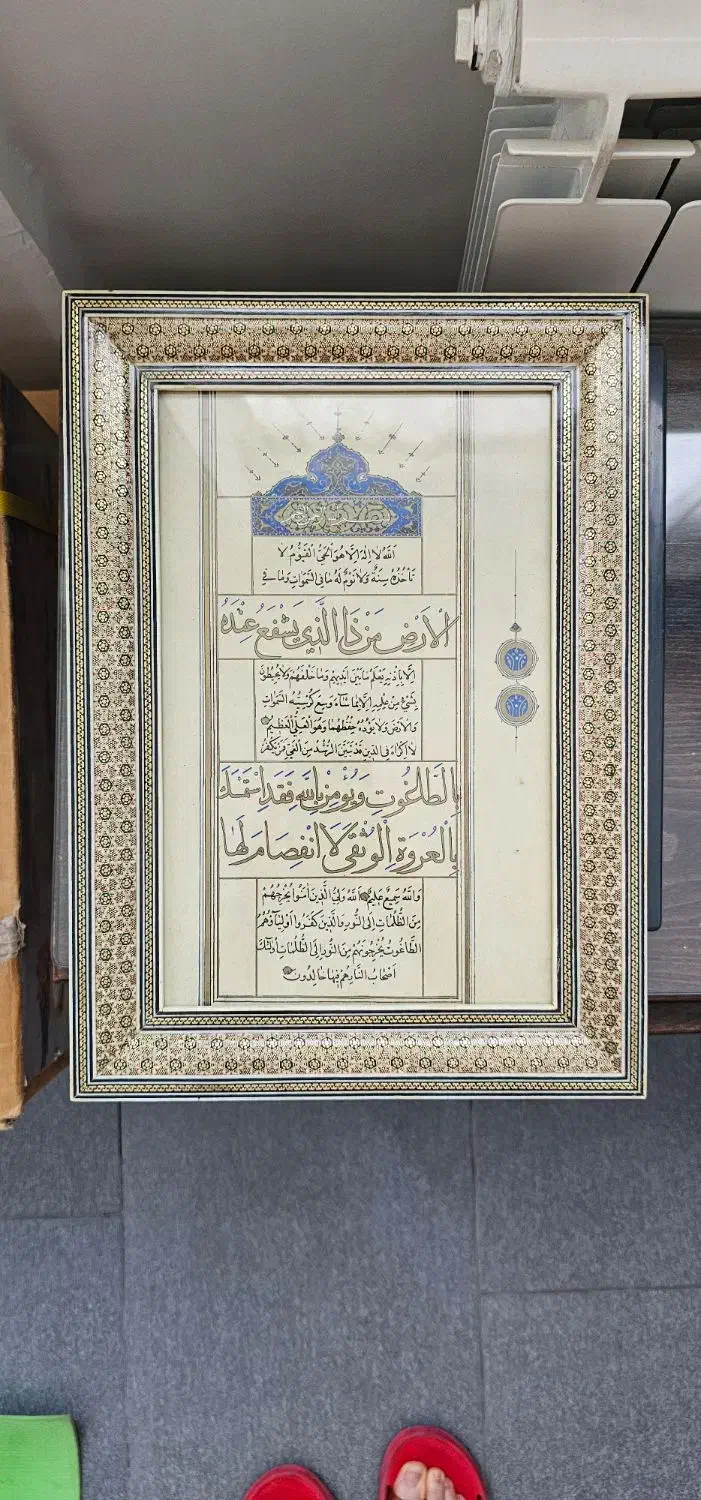 بسم الله الرحمن الرحيم
اَللّٰهُ لَا اِلٰهَ اِلَّا هُوَ الْحَيُّ الْقَيُّومُ لَا
تَأْخُذُهُ سِنَةٌ وَلَا نَوْمٌ لَهُ مَا فِي السَّمٰوَاتِ وَمَا فِي
الْاَرْضِ مَنْ ذَا الَّذِي يَشْفَعُ عِنْدَهُ
اِلَّا بِاِذْنِهِ يَعْلَمُ مَا بَيْنَ اَيْدِيهِمْ وَمَا خَلْفَهُمْ وَلَا يُحِيطُونَ
بِشَيْءٍ مِنْ عِلْمِهِ اِلَّا بِمَا شَاءَ وَسِعَ كُرْسِيُّهُ السَّمٰوَاتِ
وَالْاَرْضَ وَلَا يَؤُدُهُ حِفْظُهُمَا وَهُوَ الْعَلِيُّ الْعَظِيمُ
لَا اِكْرَاهَ فِي الدِّينِ قَدْ تَبَيَّنَ الرُّشْدُ مِنَ الْغَيِّ فَمَنْ يَكْفُرْ
بِالطَّاغُوتِ وَيُؤْمِنْ بِاللّٰهِ فَقَدِ اسْتَمْسَكَ
بِالْعُرْوَةِ الْوُثْقٰى لَا انْفِصَامَ لَهَا
وَاللّٰهُ سَمِيعٌ عَلِيمٌ اَللّٰهُ وَلِيُّ الَّذِينَ اٰمَنُوا يُخْرِجُهُمْ
مِنَ الظُّلُمَاتِ اِلَى النُّورِ وَالَّذِينَ كَفَرُوا اَوْلِيَاؤُهُمُ
الطَّاغُوتُ يُخْرِجُونَهُمْ مِنَ النُّورِ اِلَى الظُّلُمَاتِ اُولٰئِكَ
اَصْحَابُ النَّارِ هُمْ فِيهَا خَالِدُونَ